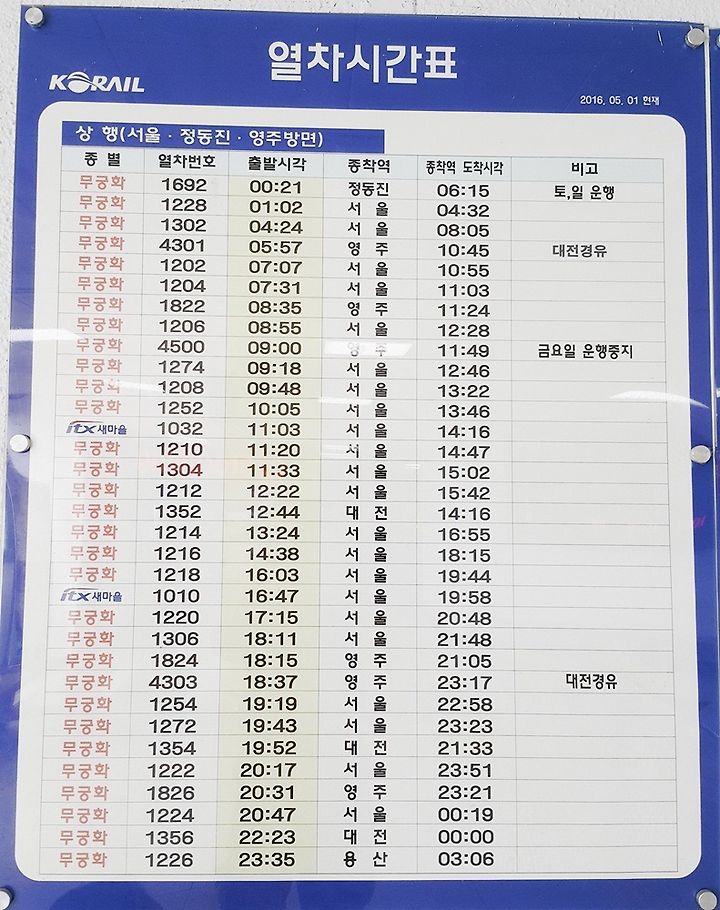 열차시간표
KORAIL
2016. 05. 01 현재
상 행(서울 · 정동진 · 영주방면)
종 별 열차번호 출발시각 종착역 종착역 도착시각 비고
무궁화 1692 00:21 정동진 06:15 토,일 운행
무궁화 1228 01:02 서 울 04:32
무궁화 1302 04:24 서 울 08:05
무궁화 4301 05:57 영 주 10:45 대전경유
무궁화 1202 07:07 서 울 10:55
무궁화 1204 07:31 서 울 11:03
무궁화 1822 08:35 영 주 11:24
무궁화 1206 08:55 서 울 12:28
무궁화 4500 09:00 영 주 11:49 금요일 운행중지
무궁화 1274 09:18 서 울 12:46
무궁화 1208 09:48 서 울 13:22
무궁화 1252 10:05 서 울 13:46
itx 새마을 1032 11:03 서 울 14:16
무궁화 1210 11:20 서 울 14:47
무궁화 1304 11:33 서 울 15:02
무궁화 1212 12:22 서 울 15:42
무궁화 1352 12:44 대 전 14:16
무궁화 1214 13:24 서 울 16:55
무궁화 1216 14:38 서 울 18:15
무궁화 1218 16:03 서 울 19:44
itx 새마을 1010 16:47 서 울 19:58
무궁화 1220 17:15 서 울 20:48
무궁화 1306 18:11 서 울 21:48
무궁화 1824 18:15 영 주 21:05
무궁화 4303 18:37 영 주 23:17 대전경유
무궁화 1254 19:19 서 울 22:58
무궁화 1272 19:43 서 울 23:23
무궁화 1354 19:52 대 전 21:33
무궁화 1222 20:17 서 울 23:51
무궁화 1826 20:31 영 주 23:21
무궁화 1224 20:47 서 울 00:19
무궁화 1356 22:23 대 전 00:00
무궁화 1226 23:35 용 산 03:06